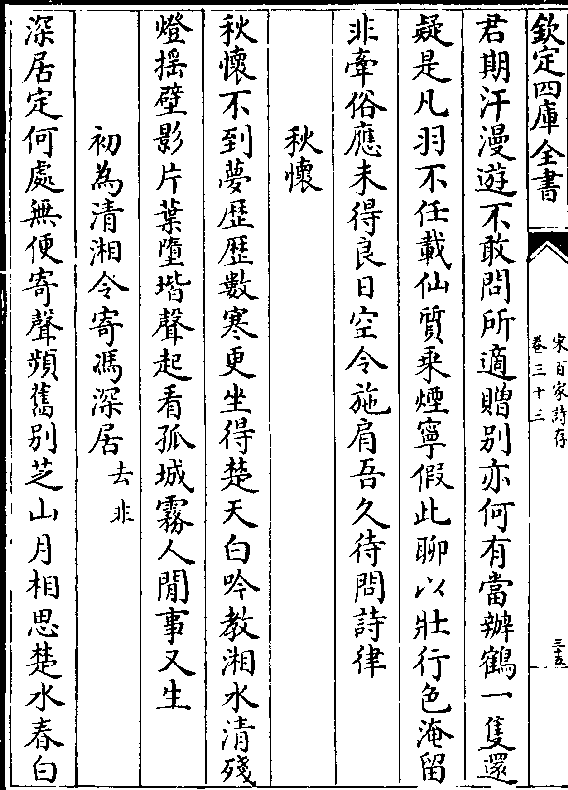 欽定四庫全書
宋百家詩存
卷三十三
三十五
君期汗漫遊不敢問所適贈别亦何有當辦鶴一隻還
疑是凡羽不任載仙質乗煙寧假此聊以壯行色淹留
非牽俗應未得良日空令施肩吾久待問詩律
秋懷
秋懷不到夢歴歴數寒更坐得楚天白吟教湘水清殘
燈揺壁影片葉墮堦聲起看孤城霧人閒事又生
初為清湘令寄馮深居去非
深居定何處無便寄聲頻舊别芝山月相思楚水春白